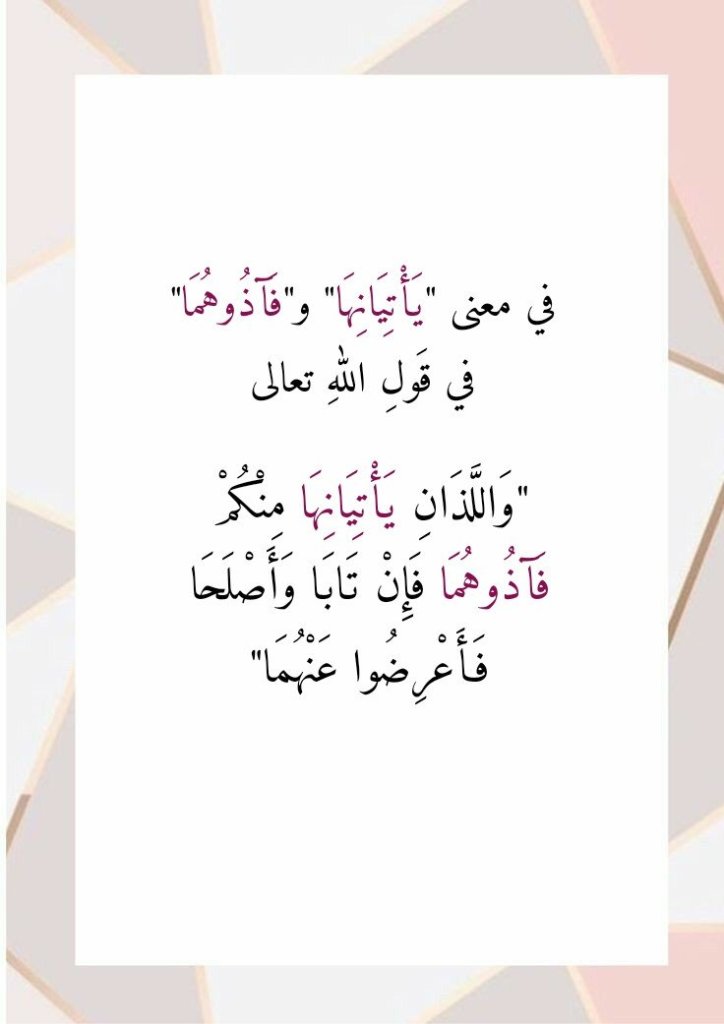 في معنى "يَأْتِيَانِهَا" و"فَآذُوهُمَا"
في قَولِ اللهِ تعالى
"وَاللَّذَانِ يَأْتِيَانِهَا مِنْكُمْ
فَآذُوهُمَا فَإِنْ تَابَا وَأَصْلَحَا
فَأَعْرِضُوا عَنْهُمَا"